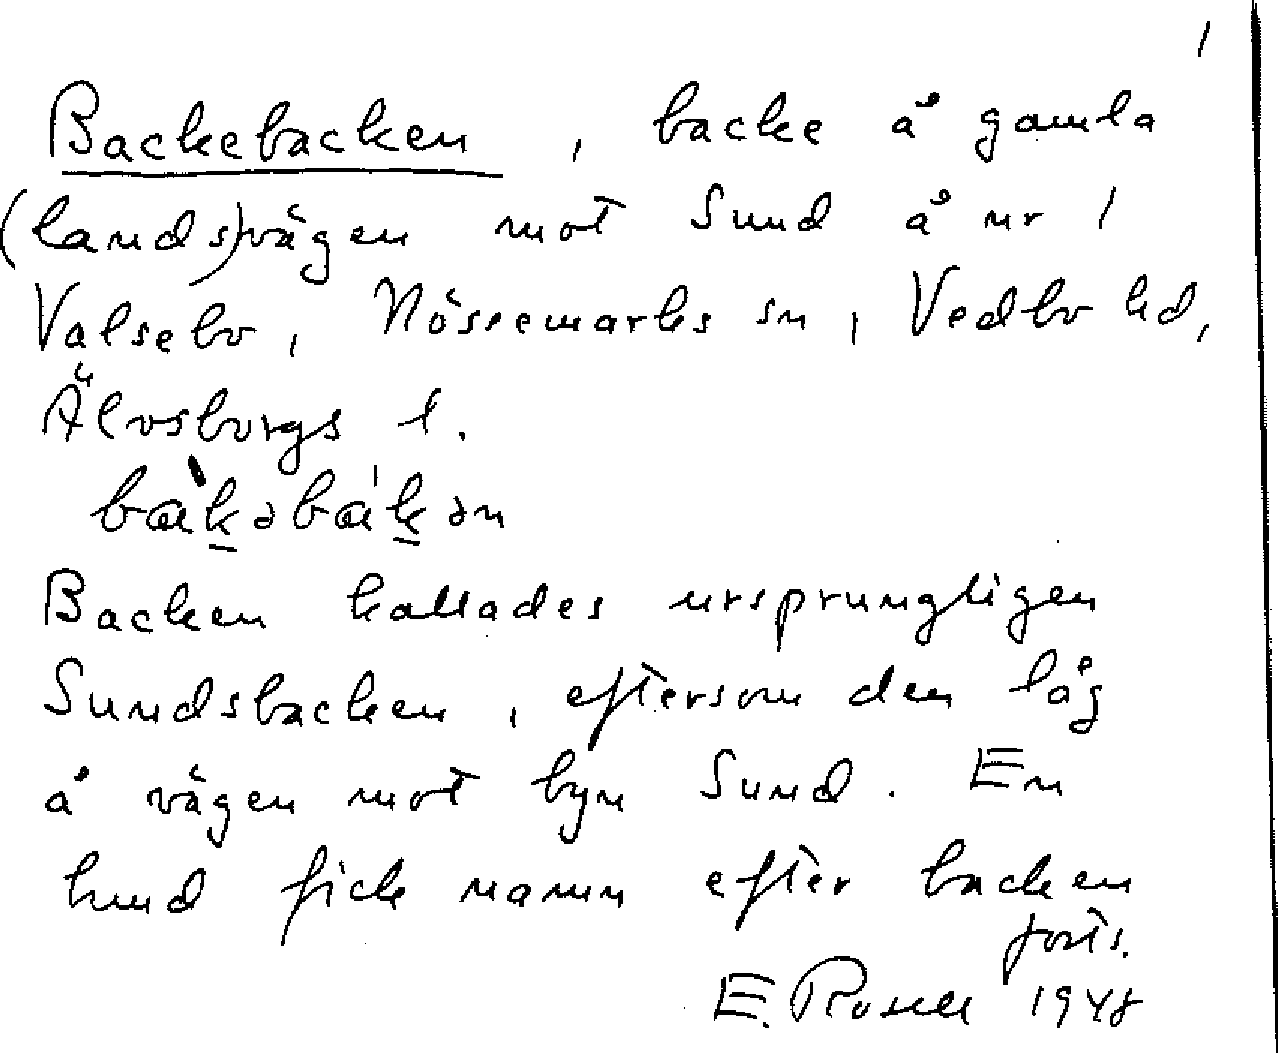 1
Backebacken, backe å gamla
(lands)vägen mot Sund å nr 1
Valsebo, Nössemarks sn, Vedbo hd,
Älvsborgs l.
Backen kallades ursprungligen
Sundsbacken, eftersom den låg
å vägen mot byn Sund. En
hund fick namn efter backen
forts.
E. Rosell 1948